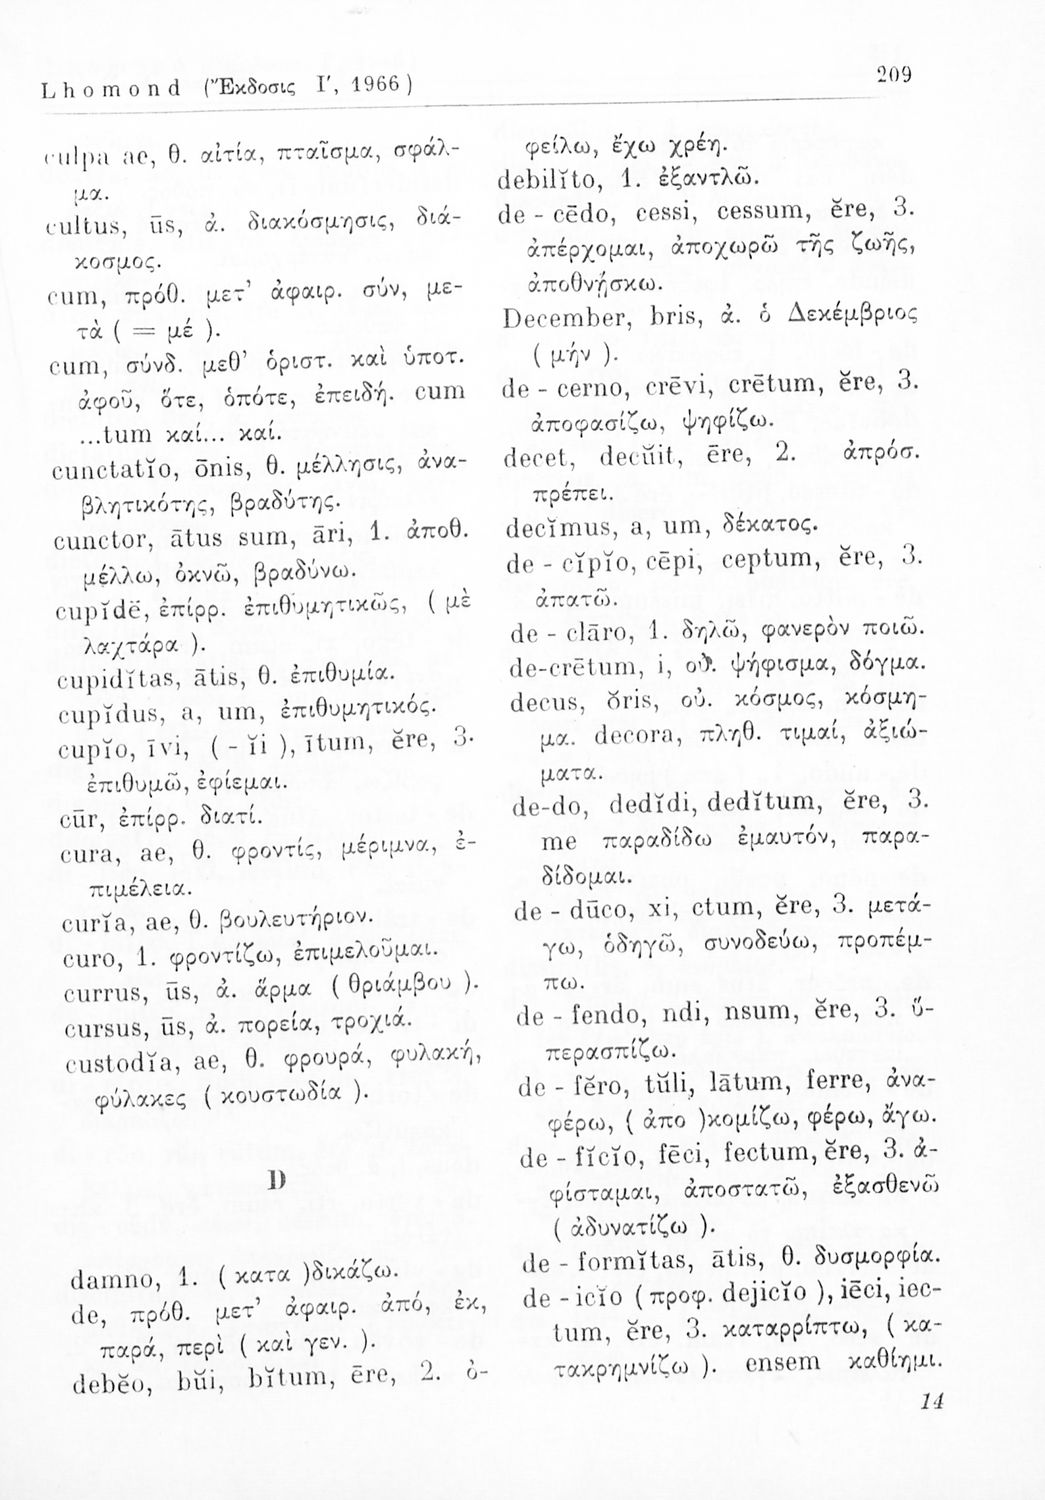 Lhomond (Ἔκδοσις Ι′, 1966)
209
culpa ae, θ. αἰτία, πταῖσμα, σφάλ-
μα.
cultus, ūs, ἀ. διακόσμησις, διά-
κοσμος.
cum, πρόθ. μετ’ ἀφαιρ. σύν, με-
τὰ ( = μέ ).
cum, σύνδ. μεθ’ ὁριστ. καὶ ὑποτ.
ἀφοῦ, ὅτε, ὁπότε, ἐπειδή. cum
...tum καί... καί.
cunctatĭo, ōnis, θ. μέλλησις, ἀνα-
βλητικότης, βραδύτης.
cunctor, ātus sum, āri, 1. ἀποθ.
μέλλω, ὀκνῶ, βραδύνω.
cupĭdē, ἐπίρρ. ἐπιθυμητικῶς, ( μὲ
λαχτάρα ).
cupidĭtas, ātis, θ. ἐπιθυμία.
cupĭdus, a, um, ἐπιθυμητικός.
cupĭo, īvi, ( - ĭi ), ītum, ĕre, 3.
ἐπιθυμῶ, ἐφίεμαι.
cūr, ἐπίρρ. διατί.
cura, ae, θ. φροντίς, μέριμνα, ἐ-
πιμέλεια.
curĭa, ae, θ. βουλευτήριον.
curo, 1. φροντίζω, ἐπιμελοῦμαι.
currus, ūs, ἀ. ἅρμα ( θριάμβου ).
cursus, ūs, ἀ. πορεία, τροχιά.
custodĭa, ae, θ. φρουρά, φυλακή,
φύλακες ( κουστωδία ).
D
damno, 1. ( κατα )δικάζω.
de, πρόθ. μετ’ ἀφαιρ. ἀπό, ἐκ,
παρά, περὶ ( καὶ γεν. ).
debĕo, bŭi, bĭtum, ēre, 2. ὀ-
φείλω, ἔχω χρέη.
debilĭto, 1. ἐξαντλῶ.
de - cēdo, cessi, cessum, ĕre, 3.
ἀπέρχομαι, ἀποχωρῶ τῆς ζωῆς,
ἀποθνῄσκω.
December, bris, ἀ. ὁ Δεκέμβριος
( μήν ).
de - cerno, crēvi, crētum, ĕre, 3.
ἀποφασίζω, ψηφίζω.
decet, decŭit, ēre, 2. ἀπρόσ.
πρέπει.
decĭmus, a, um, δέκατος.
de - cĭpĭo, cēpi, ceptum, ĕre, 3.
ἀπατῶ.
de - clāro, 1. δηλῶ, φανερὸν ποιῶ.
de-crētum, i, οὐ. ψήφισμα, δόγμα.
decus, ŏris, οὐ. κόσμος, κόσμη-
μα. decora, πληθ. τιμαί, ἀξιώ-
ματα.
de-do, dedĭdi, dedĭtum, ĕre, 3.
me παραδίδω ἐμαυτόν, παρα-
δίδομαι.
de - dūco, xi, ctum, ĕre, 3. μετά-
γω, ὁδηγῶ, συνοδεύω, προπέμ-
πω.
de - fendo, ndi, nsum, ĕre, 3. ὑ-
περασπίζω.
de - fĕro, tŭli, lātum, ferre, ἀνα-
φέρω, ( ἀπο )κομίζω, φέρω, ἄγω.
de - fĭcĭo, fēci, fectum, ĕre, 3. ἀ-
φίσταμαι, ἀποστατῶ, ἐξασθενῶ
( ἀδυνατίζω ).
de - formĭtas, ātis, θ. δυσμορφία.
de - icĭo ( προφ. dejicĭo ), iēci, iec-
tum, ĕre, 3. καταρρίπτω, ( κα-
τακρημνίζω ). ensem καθίημι.
14